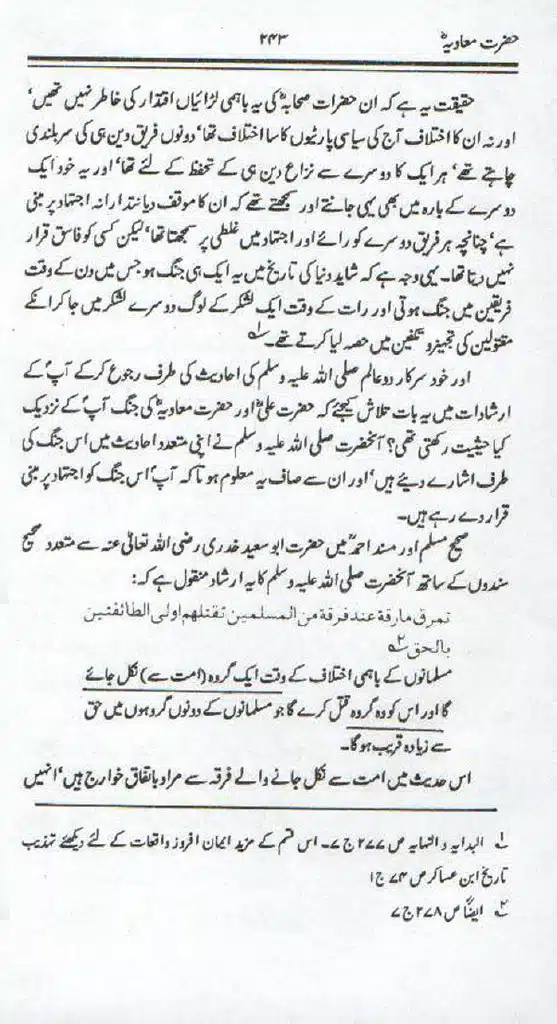 حضرت معاویہؓ
۲۴۳
حقیقت یہ ہے کہ ان حضرات صحابہؓ کی یہ باہمی لڑائیاں اقتدار کی خاطر نہیں تھیں‘
اور نہ ان کا اختلاف آج کی سیاسی پارٹیوں کا سا اختلاف تھا‘ دونوں فریق دین ہی کی سربلندی
چاہتے تھے‘ ہر ایک کا دوسرے سے نزاع دین ہی کے تحفظ کے لئے تھا‘ اور یہ خود ایک
دوسرے کے بارہ میں بھی یہی جانتے اور سمجھتے تھے کہ ان کا موقف دیانتدارانہ اجتہاد پر مبنی
ہے‘ چنانچہ ہر فریق دوسرے کو رائے اور اجتہاد میں غلطی پر سمجھتا تھا‘ لیکن کسی کو فاسق قرار
نہیں دیتا تھا۔ یہی وجہ ہے کہ شاید دنیا کی تاریخ میں یہ ایک ہی جنگ ہو جس میں دن کے وقت
فریقین میں جنگ ہوتی اور رات کے وقت ایک لشکر کے لوگ دوسرے لشکر میں جا کر انکے
مقتولین کی تجہیز و تکفین میں حصہ لیا کرتے تھے۔ ۱؎
اور خود سرکار دو عالم صلی اللہ علیہ وسلم کی احادیث کی طرف رجوع کرکے آپؐ کے
ارشادات میں یہ بات تلاش کیجئے کہ حضرت علیؓ اور حضرت معاویہؓ کی جنگ آپؐ کے نزدیک
کیا حیثیت رکھتی تھی؟ آنحضرت صلی اللہ علیہ وسلم نے اپنی متعدد احادیث میں اس جنگ کی
طرف اشارے دیئے ہیں‘ اور ان سے صاف یہ معلوم ہوتا کہ آپؐ اس جنگ کو اجتہاد پر مبنی
قرار دے رہے ہیں۔
صحیح مسلم اور مسند احمدؒ میں حضرت ابو سعید خدری رضی اللہ تعالیٰ عنہ سے متعدد صحیح
سندوں کے ساتھ آنحضرت صلی اللہ علیہ وسلم کا یہ ارشاد منقول ہے کہ:
تمرق مارقة عند فرقة من المسلمین تقتلهم اولی الطائفتین
بالحق ۲؎
مسلمانوں کے باہمی اختلاف کے وقت ایک گروہ (امت سے) نکل جائے
گا اور اس کو وہ گروہ قتل کرے گا جو مسلمانوں کے دونوں گروہوں میں حق
سے زیادہ قریب ہوگا۔
اس حدیث میں امت سے نکل جانے والے فرقہ سے مراد باتفاق خوارج ہیں‘ انہیں
۱؎ البدایہ و النہایہ ص ۲۷۷ ج ۷۔ اس قسم کے مزید ایمان افروز واقعات کے لئے دیکھئے تہذیب
تاریخ ابن عساکر ص ۷۴ ج ۱
۲؎ ایضاً ص ۲۷۸ ج ۷